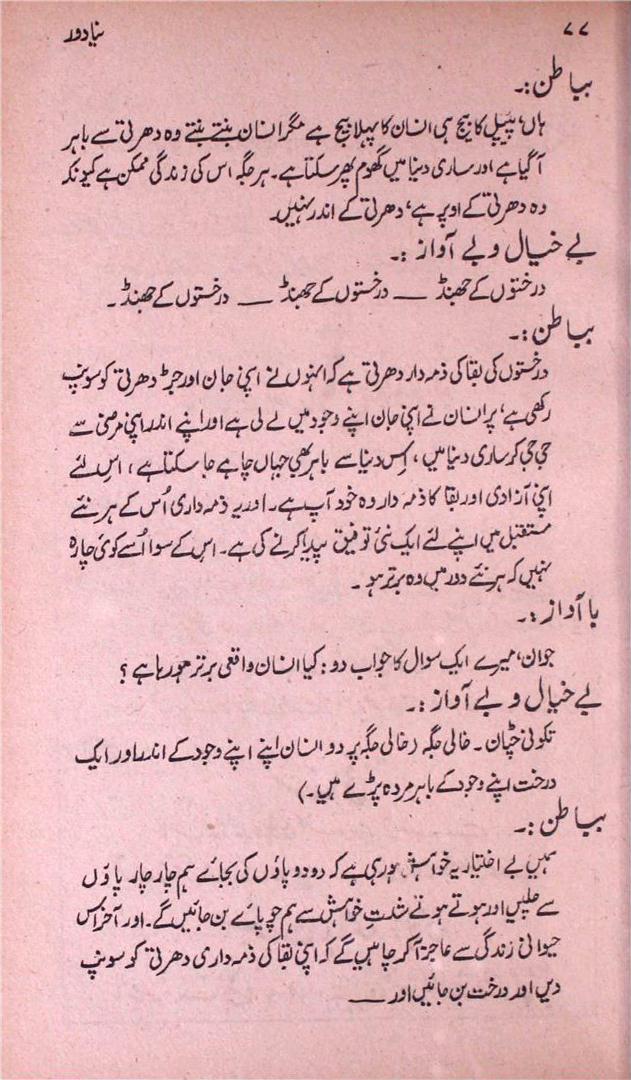 ۷۷
نیا دور
بیاطن:۔
ہاں، پیپل کا بیج ہی انسان کا پہلا بیج ہے مگر انسان بنتے بنتے وہ دھرتی سے باہر
آگیا ہے اور ساری دنیا میں گھوم پھر سکتا ہے۔ ہر جگہ اس کی زندگی ممکن ہے کیونکہ
وہ دھرتی کے اوپر ہے، دھرتی کے اندر نہیں۔
بے خیال و بے آواز :۔
درختوں کے جھنڈ — درختوں کے جھنڈ — درختوں کے جھنڈ۔
بیاطن:۔
درختوں کی بقا کی ذمہ دار دھرتی ہے کہ انہوں نے اپنی جان اور جڑ دھرتی کو سونپ
رکھی ہے، پر انسان نے اپنی جان اپنے وجود میں لے لی ہے اور اپنے اندر اپنی مرضی سے
جی جی کر ساری دنیا میں، اِس دنیا سے باہر بھی جہاں چاہے جا سکتا ہے، اس لئے
اپنی آزادی اور بقا کا ذمہ دار وہ خود آپ ہے۔ اور یہ ذمہ داری اُس کے ہر نئے
مستقبل میں اپنے لئے ایک نئی توفیق پیدا کرنے کی ہے۔ اِس کے سوا اُسے کوئی چارہ
نہیں کہ ہر نئے دور میں وہ برتر ہو۔
با آواز :۔
جوان، میرے ایک سوال کا جواب دو: کیا انسان واقعی برتر ہو رہا ہے؟
بے خیال و بے آواز :۔
تکونی چٹان۔ خالی جگہ (خالی جگہ پر دو انسان اپنے اپنے وجود کے اندر اور ایک
درخت اپنے وجود کے باہر مردہ پڑے ہیں۔)
بیاطن:۔
ہمیں بے اختیار یہ خواہش ہو رہی ہے کہ دو دو پاؤں کی بجائے ہم چار چار پاؤں
سے چلیں اور ہوتے ہوتے شدتِ خواہش سے ہم چوپائے بن جائیں گے۔ اور آخر اس
حیوانی زندگی سے عاجز آ کر چاہیں گے کہ اپنی بقا کی ذمہ داری دھرتی کو سونپ
دیں اور درخت بن جائیں اور —